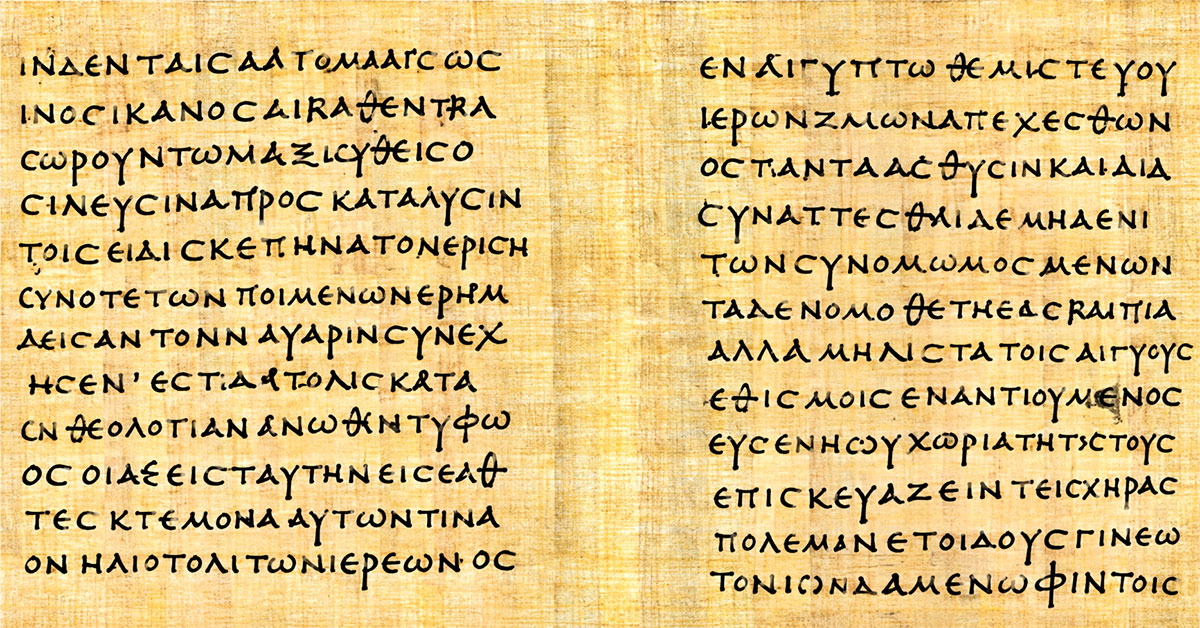 ΙΝΔΕΝΤΑΙϹΑΔΤΟΜΑΑΓϹωϹ
ΙΝΟϹΙΚΑΝΟϹΔΙRΑΘΕΝΤRΑ
ϹωΡΟΥΝΤωΜΑΞΙϹΥΘΕΙϹΟ
ϹΙΛΕΥϹΙΝΑΠΡΟϹΚΑΤΑΛΥϹΙΝ
ΤΟΙϹΕΙΔΙϹΚΕΠΗΝΑΤΟΝΕΡΙϹΗ
ϹΥΝΟΤΕΤωΝΠΟΙΜΕΝωΝΕΡΗΜ
ΔΕΙϹΑΝΤΟΝΝΑΥΑΡΙΝϹΥΝΕΧ
ΗϹΕΝ’ΕϹΤΙΔΑΤΟΛΙϹΚΑΤΑ
ϹΝΘΕΟΛΟΤΙΑΝΑΝωΘΝΤΥΦω
ΟϹΟΙΑΞΕΙϹΤΑΥΤΗΝΕΙϹΕΑΘ
ΤΕϹΚΤΕΜΟΝΑΑΥΤωΝΤΙΝΑ
ΟΝΗΛΙΟΤΟΛΙΤωΝΙΕΡΕωΝ·ΟϹ
ΕΝΑΙΓΥΠΤωΘΕΜΙϹΤΕΥΟΥ
ΙΕΡωΝΖΜωΝΑΠΕΧΕϹΘωΝ
ΟϹΤΙΑΝΤΑΑϹΘΥϹΙΝΚΑΙΔΙΑ
ϹΥΝΑΤΤΕϹΘΑΙΔΕΜΗΔΕΝΙ
ΤωΝϹΥΝΟΜωΜΟϹΜΕΝωΝ
ΤΑΔΕΝΟΜΟΘΕΤΗΕΔϹRΑΙΠΙΑ
ΑΛΛΑΜΗΛΙϹΤΑΤΟΙϹΑΙΓΥΟΥϹ
ΕΘΙϹΜΟΙϹΕΝΑΝΤΙΟΥΜΕΝΟϹ
ΕΥϹΕΝΗωΥΧωΡΙΑΤΗΤϹϹΤΟΥϹ
ΕΠΙϹΚΕΥΑΖΕΙΝΤΕΙϹΧΗΡΑϹ
ΠΟΛΕΜΑΝΕΤΟΙΔΟΥϹΓΙΝΕω
ΤΟΝΙωΝΔΑΜΕΝωΦΙΝΤΟΙϹ